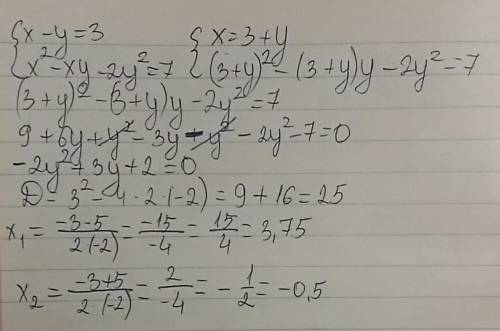 {x-y=3 {x=3+y
{x²-xy-2y²=7 {(3+y)²-(3+y)y-2y²=7
(3+y)²-(3+y)y-2y²=7
9+6y+y²-3y-y²-2y²-7=0
-2y²+3y+2=0
D=3²-4·2·(-2)=9+16=25
x₁=\frac{-3-5}{2(-2)}=\frac{-15}{-4}=\frac{15}{4}=3,75
x₂=\frac{-3+5}{2·(-2)}=\frac{2}{-4}=-\frac{1}{2}=-0,5